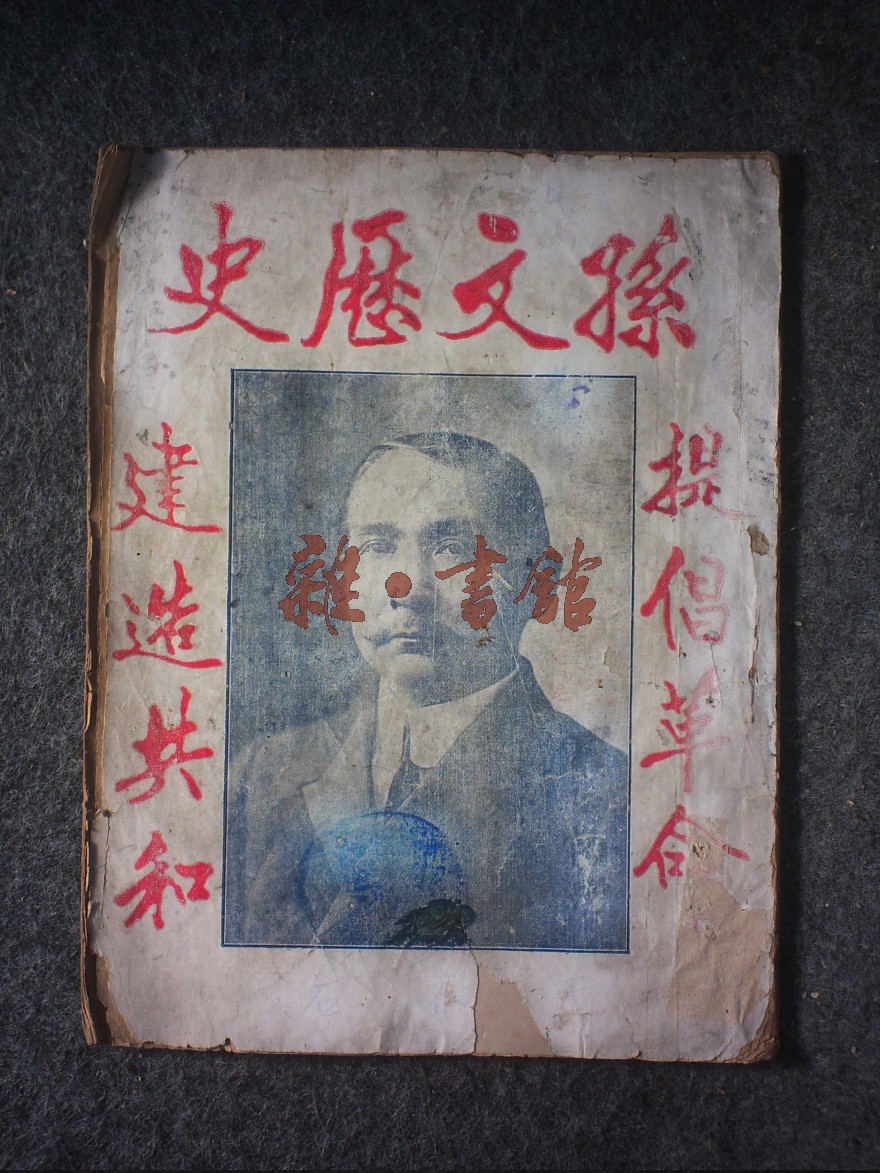 孫文歷史
提倡革命
建造共和
雜·書館